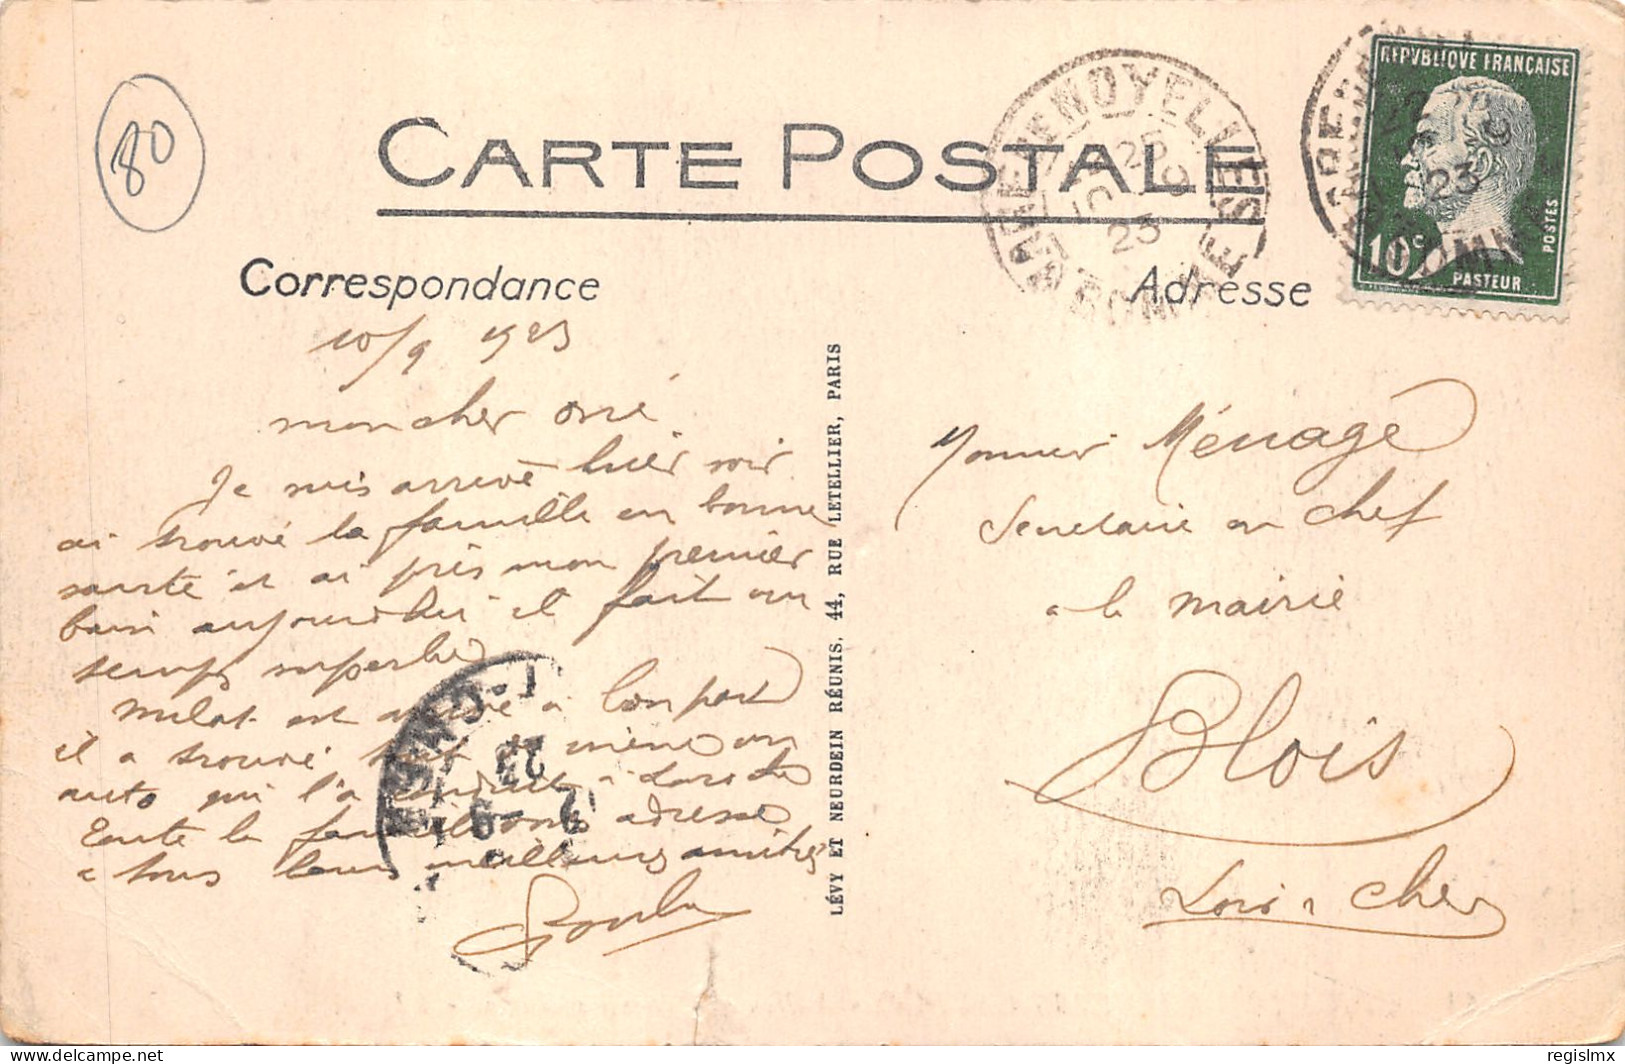 80
CARTE POSTALE
REPVBLIQVE FRANÇAISE
10c
PASTEUR
POSTES
NOYELLES
SOMME
23
Correspondance
Adresse
10/9 1923
mon cher
Je suis arrivé hier soir
ai trouvé la famille en bonne
santé et ai pris mon premier
bain aujourd'hui il fait un
temps superbe
est arrivé à bon port
il a trouvé tout de même un
auto qui l'a conduit à
Toute la famille adresse
a tous leurs meilleures amitiés
LÉVY ET NEURDEIN RÉUNIS, 44, RUE LETELLIER, PARIS
Monsieur Ménage
Secretaire en chef
a la mairie
Blois
Loir & Cher
www.delcampe.net
regislmx